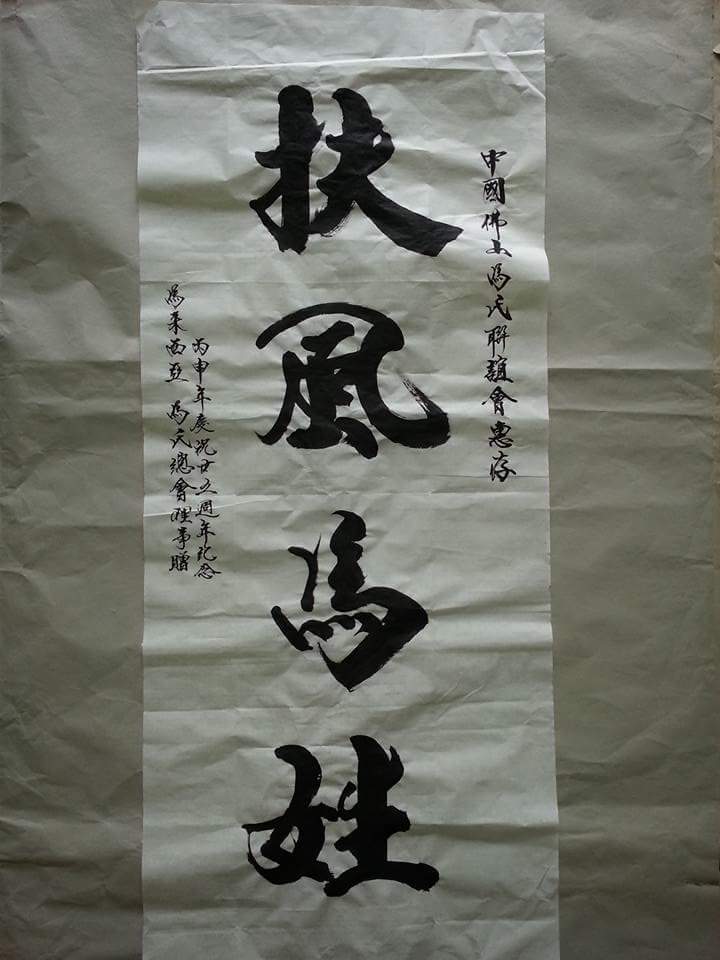 中國佛山馬氏聯誼會惠存
扶風馬姓
丙申年慶祝廿五週年紀念
馬來西亞 馬氏總會理事贈